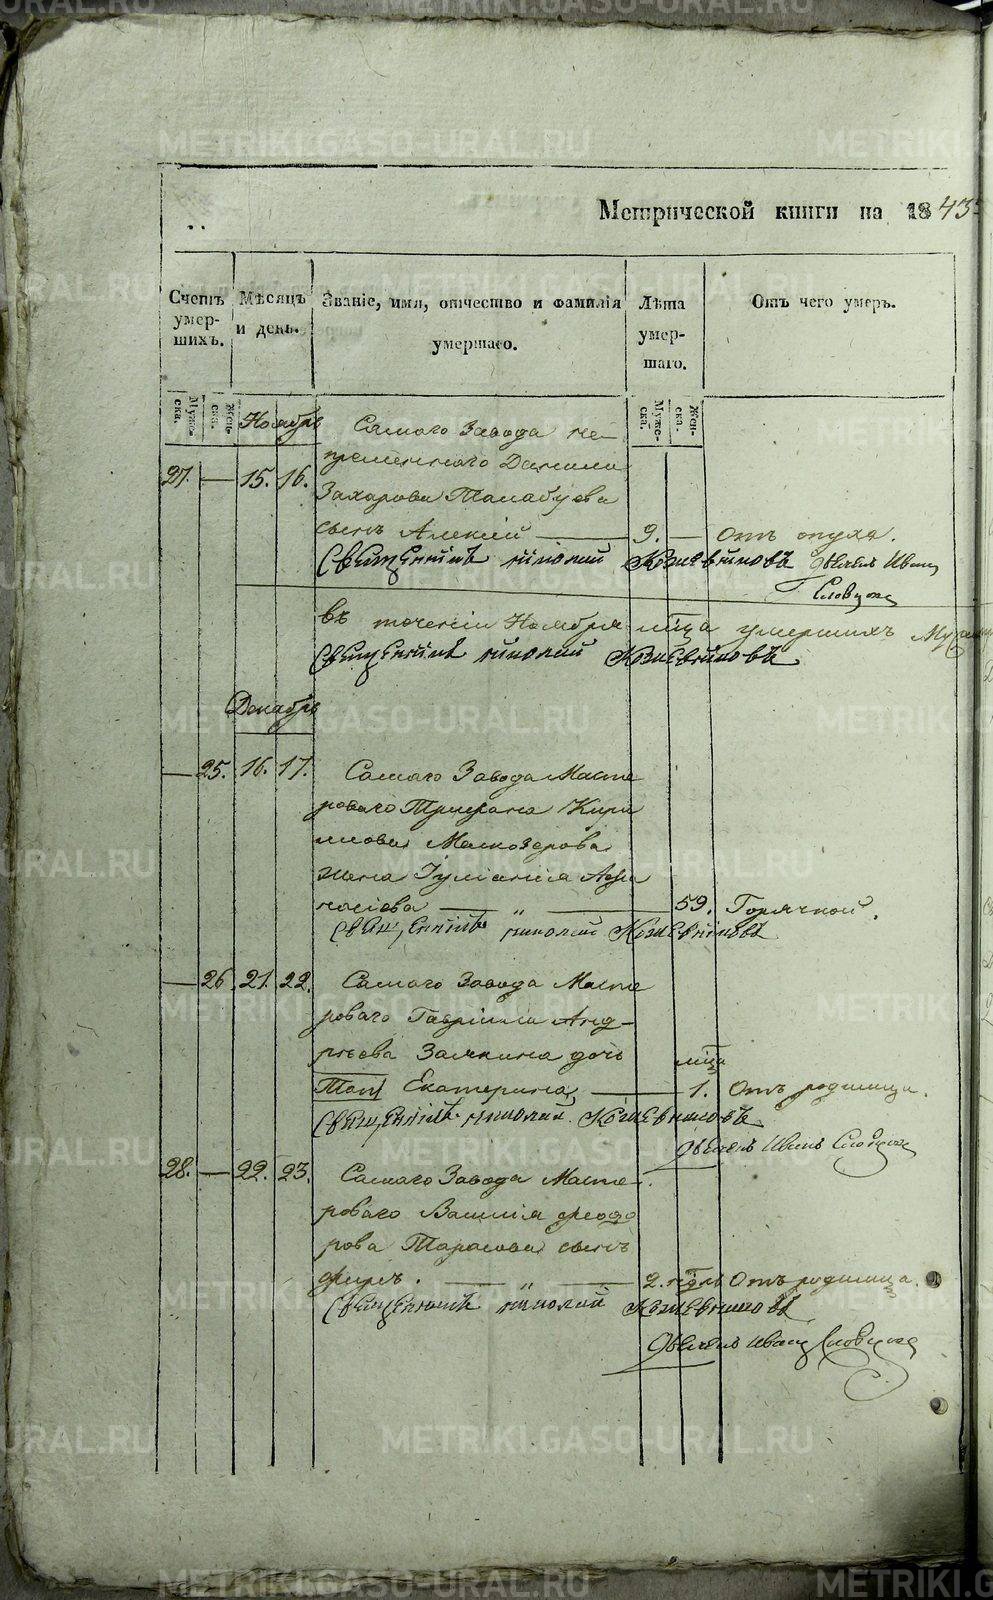 Метрической книги на 1843
Счетъ умерших.
Мѣсяцъ и день.
Званіе, имя, отчество и фамилія умершаго.
Лѣта умершаго.
Отъ чего умеръ.
Мужеска.
Женска.
Мужеска.
Женска.
Ноябрь
Самаго Завода не-
премѣннаго Данила
27. — 15. 16.
Захарова
сынъ Алексѣй — 9. — Отъ опуха.
Священникъ Николай Кожевниковъ Дьячекъ Иванъ
Словцовъ
въ теченіи Ноября мѣсяца умершихъ
Священникъ Николай Кожевниковъ
Декабрь
— 25. 16. 17. Самаго Завода Масте
роваго Трифана Кири
лова
жена Іуліанія Афа
насіева — „ — 59. Горячкой.
Священникъ Николай Кожевниковъ
— 26. 21. 22. Самаго Завода Масте
роваго Гавріила Анд-
рѣева Заякина дочь
Екатерина — мца 1. Отъ родимца.
Священникъ Николай Кожевниковъ
Дьячекъ Иванъ Словцовъ
28. — 22. 23. Самаго Завода Масте-
роваго Василія Феодо
рова Тарасова сынъ
Фирсъ. — „ — 2. недѣль Отъ родимца.
Священникъ Николай Кожевниковъ
Дьячекъ Иванъ Словцовъ
METRIKI.GASO-URAL.RU